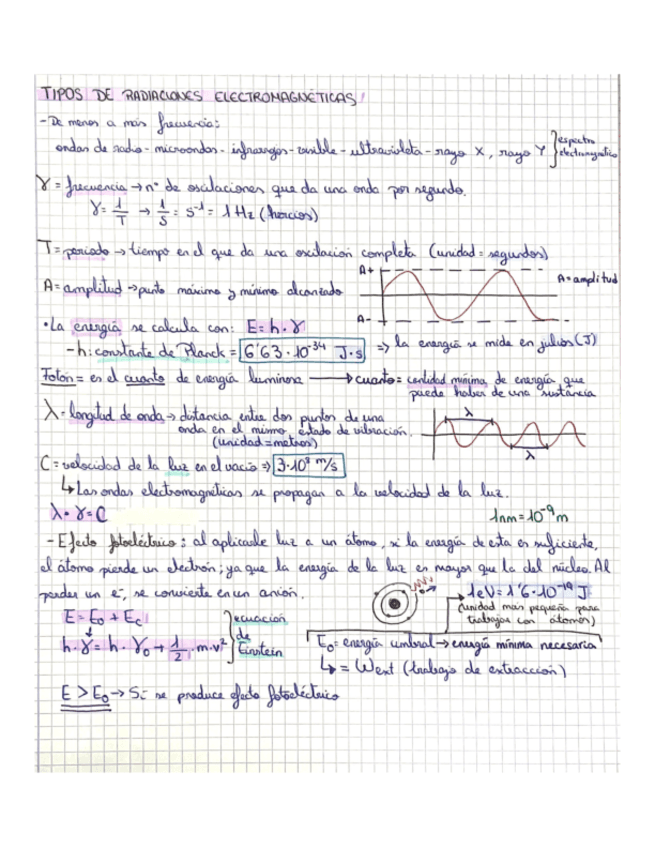 TIPOS DE RADIACIONES ELECTROMAGNÉTICAS
- De menos a más frecuencia:
ondas de radio - microondas - infrarrojos - visible - ultravioleta - rayos X, rayos γ } espectro electromagnético
γ = frecuencia → nº de oscilaciones que da una onda por segundo.
γ = 1/T → 1/S = s⁻¹ = 1 Hz (hercios)
T = periodo → tiempo en el que da una oscilación completa (unidad = segundos)
A+
A = amplitud
A = amplitud → punto máximo y mínimo alcanzado
A-
• La energía se calcula con: E = h · γ
- h: constante de Planck = 6'63 · 10⁻³⁴ J·s => la energía se mide en julios (J)
Fotón = es el cuanto de energía luminosa → cuanto = cantidad mínima de energía que
puede haber de una sustancia
λ = longitud de onda → distancia entre dos puntos de una
onda en el mismo estado de vibración.
(unidad = metros)
λ
λ
C = velocidad de la luz en el vacío => 3·10⁸ m/s
↳ Las ondas electromagnéticas se propagan a la velocidad de la luz.
λ · γ = C
1nm = 10⁻⁹ m
- Efecto fotoeléctrico: al aplicarle luz a un átomo, si la energía de esta es suficiente,
el átomo pierde un electrón; ya que la energía de la luz es mayor que la del núcleo. Al
perder un e⁻, se convierte en un anión.
1eV = 1'6 · 10⁻¹⁹ J
(unidad más pequeña para
trabajar con átomos)
E = E₀ + Ec
h · γ = h · γ₀ + 1/2 · m · v² } ecuación de Einstein
E₀ = energía umbral → energía mínima necesaria
↳ = Wext (trabajo de extracción)
E > E₀ → Sí se produce efecto fotoeléctrico